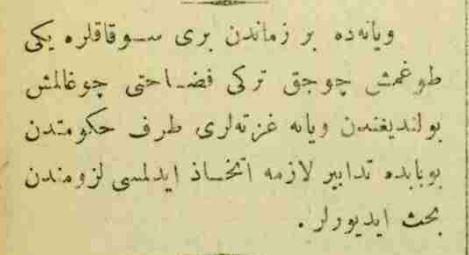 ويانه‌ده بر زماندن برى سوقاقلره يكى
طوغمش چوجق تركى فضاحتى چوغالمش
بولنديغندن ويانه غزته‌لرى طرف حكومتدن
بوبابده تدابير لازمه اتخاذ ايدلمسى لزومندن
بحث ايديورلر .